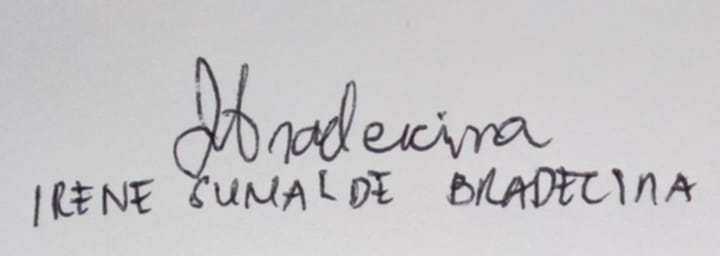 ISBradecina
IRENE SUMALDE BRADECINA